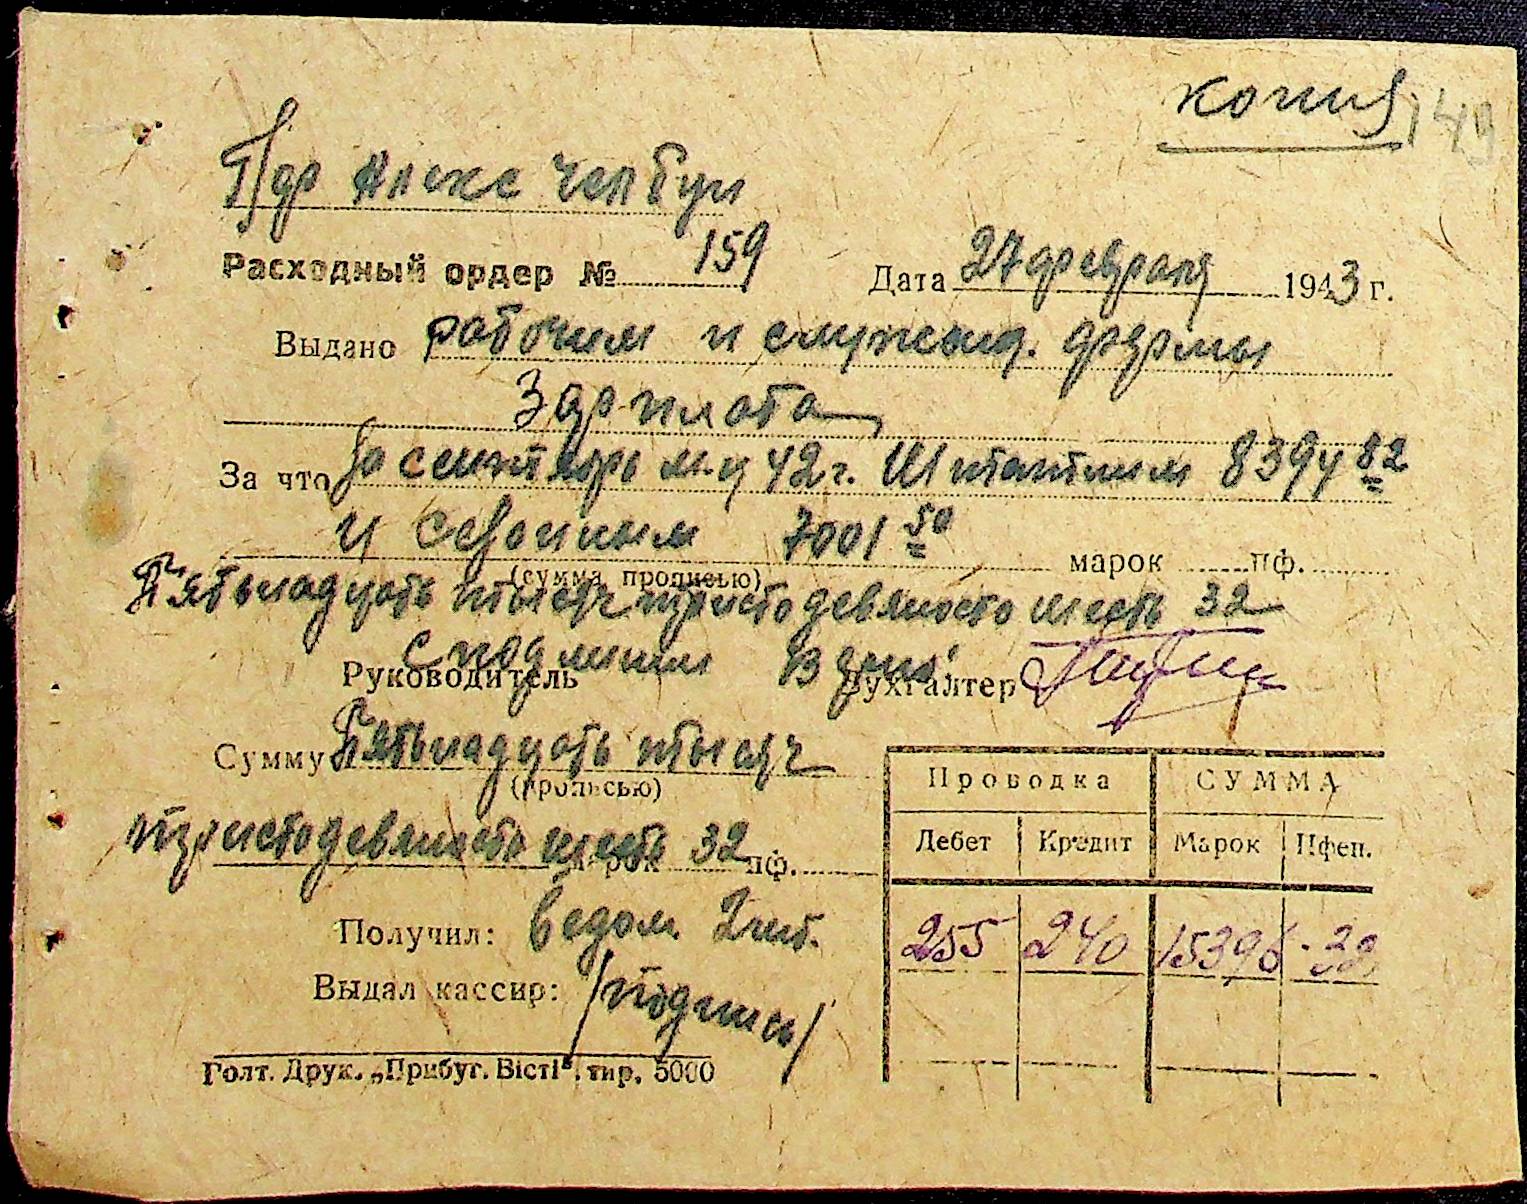 копия 149
П/др Алекс Челбун
Расходный ордер № 159 Дата 27 февраля 1943 г.
Выдано рабочим и служащ. фермы
Зарплата
За что за сентябрь м-ц 42 г. Штатным 8394 82
и сезонным 7001 50 марок пф.
(сумма прописью)
Пятьнадцать тысяч тристодевяносто шесть 32
Руководитель Бухгалтер
Сумму Пятьнадцать тысяч
(прописью)
тристодевяносто шесть марок 32 пф.
Проводка СУММА
Дебет Кредит Марок Пфен.
255 240 15396 - 32
Получил: Ведом. 2 шт.
Выдал кассир: /подпись/
Голт. Друк. „Прибуг. Вісті“. тир. 5000